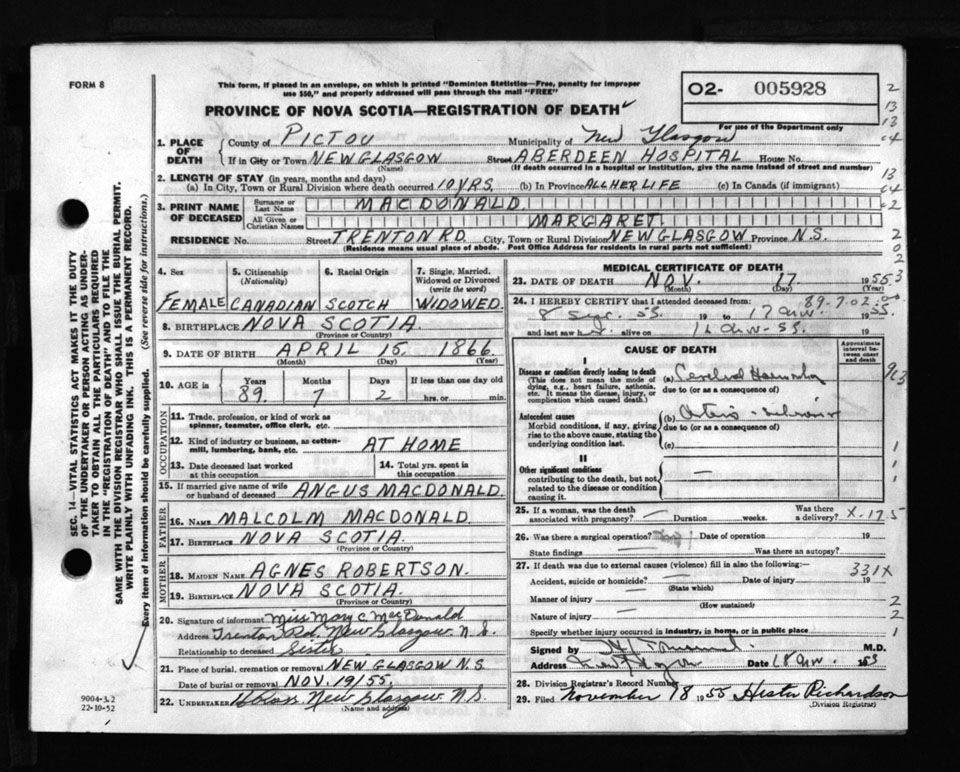 FORM 8
This form, if placed in an envelope, on which is printed "Dominion Statistics—Free, penalty for improper
use $50," and properly addressed will pass through the mail "FREE"
PROVINCE OF NOVA SCOTIA—REGISTRATION OF DEATH
O2- 005928
For use of the Department only
1. PLACE OF DEATH County of PICTOU Municipality of New Glasgow
If in City or Town NEW GLASGOW (Name) Street ABERDEEN HOSPITAL House No.
(If death occurred in a hospital or institution, give the name instead of street and number)
2. LENGTH OF STAY (in years, months and days)
(a) In City, Town or Rural Division where death occurred 10 YRS. (b) In Province ALL HER LIFE (c) In Canada (if immigrant)
3. PRINT NAME OF DECEASED Surname or Last Name MACDONALD
All Given or Christian Names MARGARET
RESIDENCE No. Street TRENTON RD. City, Town or Rural Division NEW GLASGOW Province N.S.
(Residence means usual place of abode. Post Office Address for residents in rural parts not sufficient)
4. Sex FEMALE
5. Citizenship (Nationality) CANADIAN
6. Racial Origin SCOTCH
7. Single, Married, Widowed or Divorced (write the word) WIDOWED
8. BIRTHPLACE NOVA SCOTIA
(Province or Country)
9. DATE OF BIRTH APRIL 15, 1866
(Month) (Day) (Year)
10. AGE in Years 89 Months 7 Days 2 If less than one day old hrs. or min.
OCCUPATION
11. Trade, profession, or kind of work as spinner, teamster, office clerk, etc.
12. Kind of industry or business, as cotton-mill, lumbering, bank, etc. AT HOME
13. Date deceased last worked at this occupation
14. Total yrs. spent in this occupation
15. If married give name of wife or husband of deceased ANGUS MACDONALD.
FATHER
16. NAME MALCOLM MACDONALD
17. BIRTHPLACE NOVA SCOTIA.
(Province or Country)
MOTHER
18. MAIDEN NAME AGNES ROBERTSON.
19. BIRTHPLACE NOVA SCOTIA.
(Province or Country)
20. Signature of informant Miss Mary C. MacDonald
Address Trenton Rd. New Glasgow N.S.
Relationship to deceased Sister
21. Place of burial, cremation or removal NEW GLASGOW N.S.
Date of burial or removal NOV. 19/55.
22. UNDERTAKER New Glasgow N.S.
(Name and address)
MEDICAL CERTIFICATE OF DEATH
23. DATE OF DEATH NOV. 17 1955
(Month) (Day) (Year)
24. I HEREBY CERTIFY that I attended deceased from: 89-7-02
8 55 19 to 17 1955.
and last saw alive on 16 55 19
CAUSE OF DEATH
Approximate interval between onset and death
I
Disease or condition directly leading to death
(This does not mean the mode of dying, e.g., heart failure, asthenia, etc. It means the disease, injury, or complication which caused death.)
(a) Cerebral
due to (or as a consequence of)
Antecedent causes
Morbid conditions, if any, giving rise to the above cause, stating the underlying condition last.
(b)
due to (or as a consequence of)
(c)
II
Other significant conditions
contributing to the death, but not related to the disease or condition causing it.
25. If a woman, was the death associated with pregnancy? — Duration weeks. Was there a delivery? X-17.5
26. Was there a surgical operation? Date of operation 19
State findings — Was there an autopsy?
27. If death was due to external causes (violence) fill in also the following:— 331X
Accident, suicide or homicide? — Date of injury 19
(State which)
Manner of injury —
(How sustained)
Nature of injury —
Specify whether injury occurred in industry, in home, or in public place
Signed by M.D.
Address New Glasgow Date 18
28. Division Registrar's Record Number
29. Filed November 18 1955 Hester Richardson
(Division Registrar)
SEC. 14—VITAL STATISTICS ACT MAKES IT THE DUTY
OF THE UNDERTAKER OR PERSON ACTING AS UNDER-
TAKER TO OBTAIN ALL THE PARTICULARS REQUIRED
IN THE "REGISTRATION OF DEATH" AND TO FILE THE
SAME WITH THE DIVISION REGISTRAR WHO SHALL ISSUE THE BURIAL PERMIT.
WRITE PLAINLY WITH UNFADING INK. THIS IS A PERMANENT RECORD.
Every item of information should be carefully supplied. (See reverse side for instructions.)
9004-3.2
22-10-52